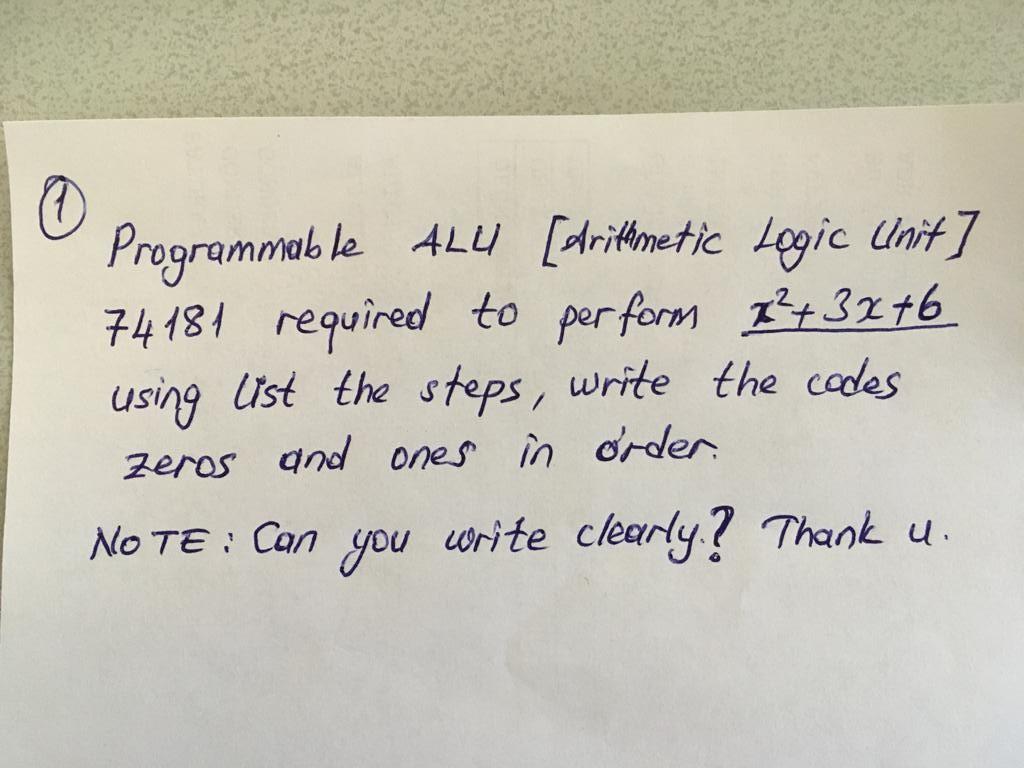 1
Programmable ALU [Arithmetic Logic Unit]
74181 required to perform x²+3x+6
using list the steps, write the codes
zeros and ones in order.
NOTE: Can you write clearly.? Thank u.